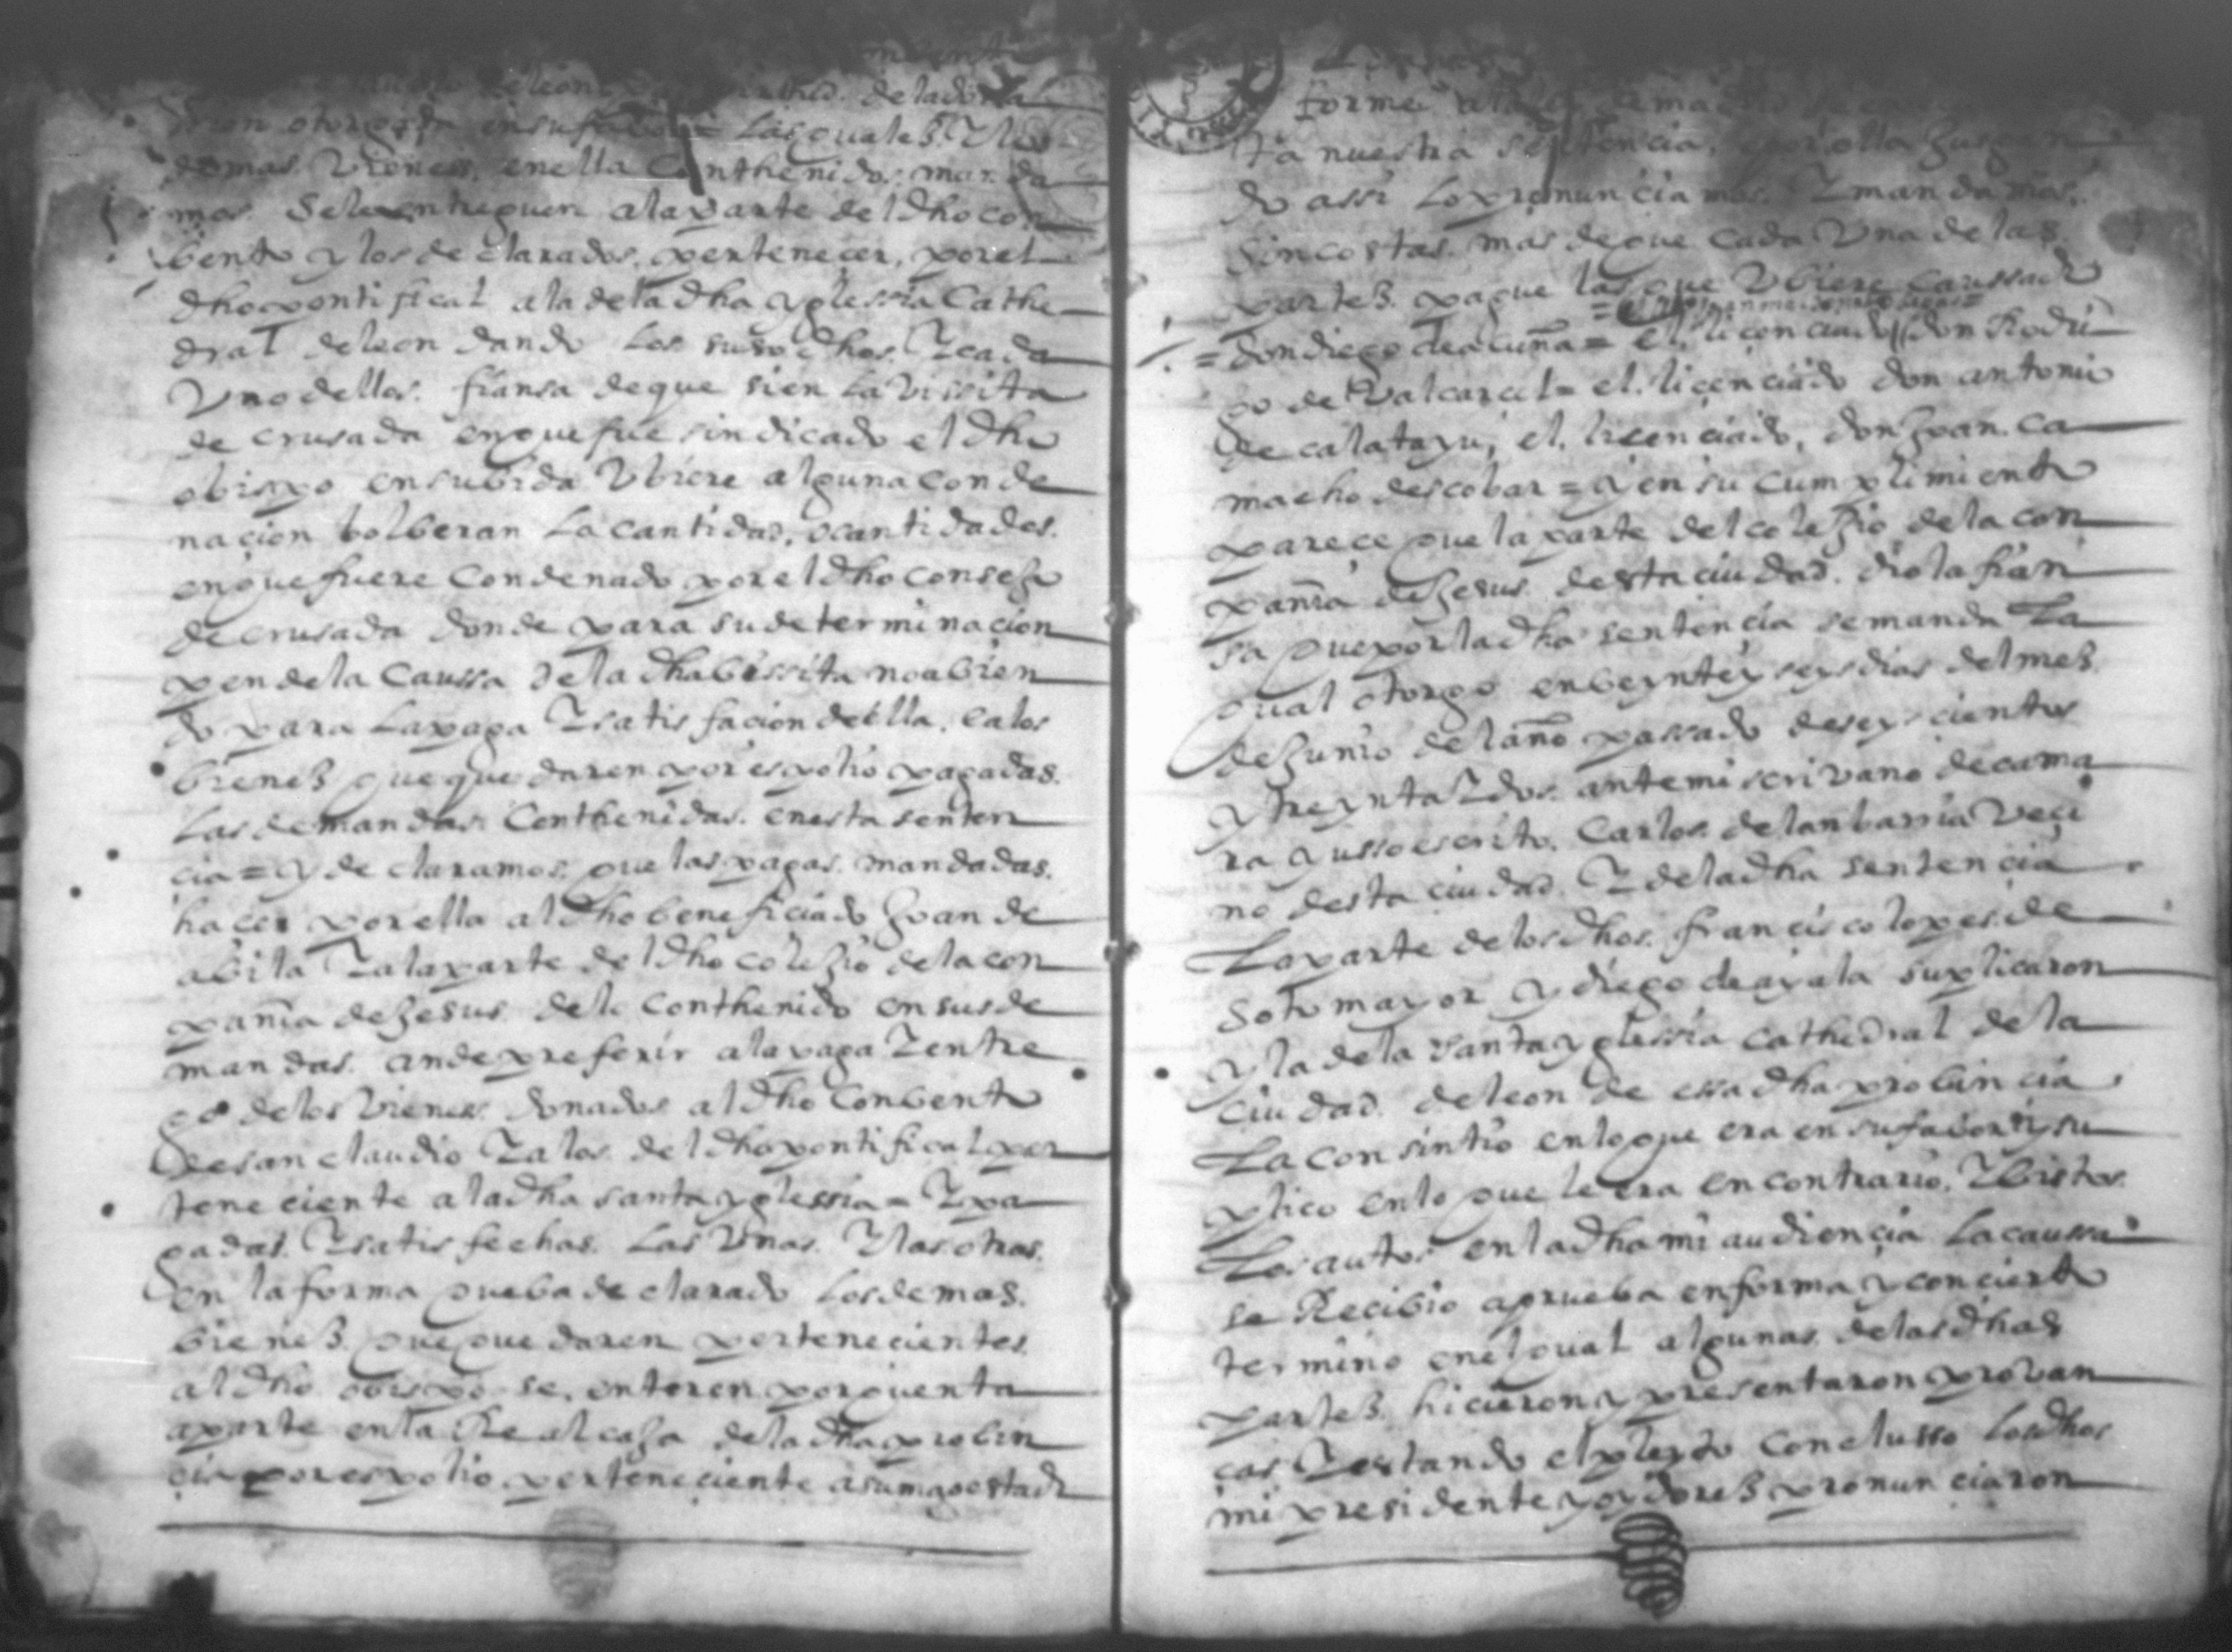 de leon de la dona
cion otorgada en su fabor = Las quales. Y los
demas. Vienes. en ella Conthenidos. manda
mos. Se le entreguen a la parte del dho con
bento y los declarados. pertenecer. por el
dho pontifical a la de la dha yglessia Cathe
dral de leon dando los susodhos. Y cada
Uno dellos. fiansa de que si en la vissita
de crusada en que fue sindicado el dho
obispo en su bida Ubiere alguna conde
nacion bolberan la cantidad. o cantidades.
en que fuere Condenado por el dho consejo
de crusada donde para su determinacion
pende la Caussa de la dha bissita no abien
do para la paga Y satisfacion della. en los
bienes que quedaren por espolio pagadas.
Las demandas. Conthenidas. en esta senten
cia = y declaramos. que las pagas. mandadas.
hacer por ella al dho beneficiado Juan de
abila Y a la parte del dho colejio de la con
pañia de Jesus. de lo Conthenido en sus de
mandas. an de preferir a la paga Y entre
go de los Vienes. donados al dho Conbento
de san claudio Y a los. del dho pontifical per
teneciente a la dha santa yglessia = Y pa
gadas. Y satisfechas. Las Unas. Y las otras.
en la forma que ba declarado los demas.
bienes. que quedaren pertenecientes.
al dho obispo se. enteren por quenta
aparte en la Real caja de la dha probin
cia por espolio perteneciente a su magestad
forme a la
ta nuestra sentencia. por ella Jusgan
do assi lo pronunciamos. Y mandamos.
sin costas. mas de que cada Una de las
partes. pague las que Ubiere caussado
= don diego de acuña = el. licenciado don Rodri
go de Valcarcel = el. licenciado don antonio
de calatayu, el. licenciado, don Juan. ca
macho descobar = y en su cumplimiento
parece que la parte del colejio de la con
pañia de Jesus. desta ciudad. dio la fian
sa que por la dha sentencia se manda La
qual otorgo en beynte y seys dias del mes.
de Junio del año passado de seyscientos
y treynta Y dos. ante mi scrivano de cama
ra yussoescrito. Carlos. de lanbarria Veci
no desta ciudad. Y de la dha sentencia
La parte de los dhos. francisco lopes. de
Sotomayor y diego de ayala suplicaron
y la de la santa yglessia cathedral de la
ciudad. de leon de essa dha probincia
La consintio en lo que era en su fabor y su
plico en lo que le era en contrario. Y bistos.
Los autos. en la dha mi audiencia la caussa
se Recibio a prueba en forma y con cierto
termino en el qual algunas. de las dhas
partes. hicieron y presentaron provan
cas Y estando el pleyto Conclusso los dhos
mi presidente y oydores pronunciaron